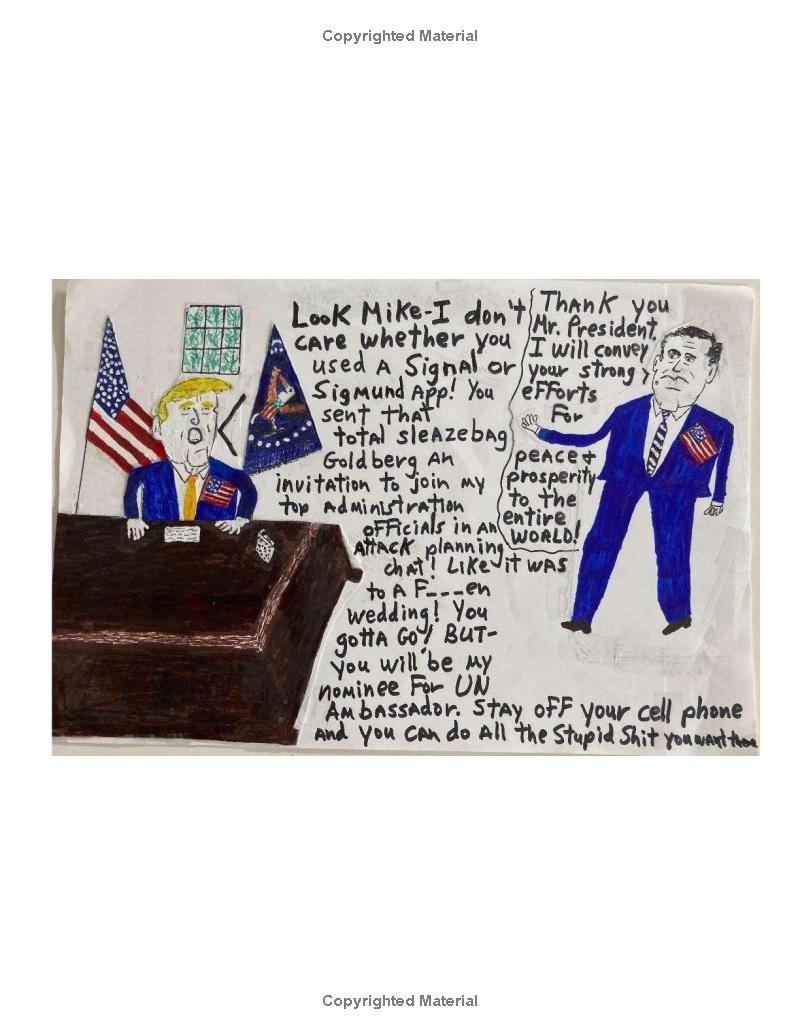 Copyrighted Material
Look Mike-I don't
care whether you
used A Signal or
Sigmund App! You
sent that
total sleazebag
Goldberg An
invitation to join my
top Administration
officials in an
Attack planning
chat! Like it was
to A F___en
wedding! You
gotta Go! BUT-
you will be my
nominee For UN
Ambassador. Stay off your cell phone
and you can do All the Stupid Shit you want then
Thank you
Mr. President.
I will convey
your strong
efforts
For
peace &
prosperity
to the
entire
WORLD!
Copyrighted Material